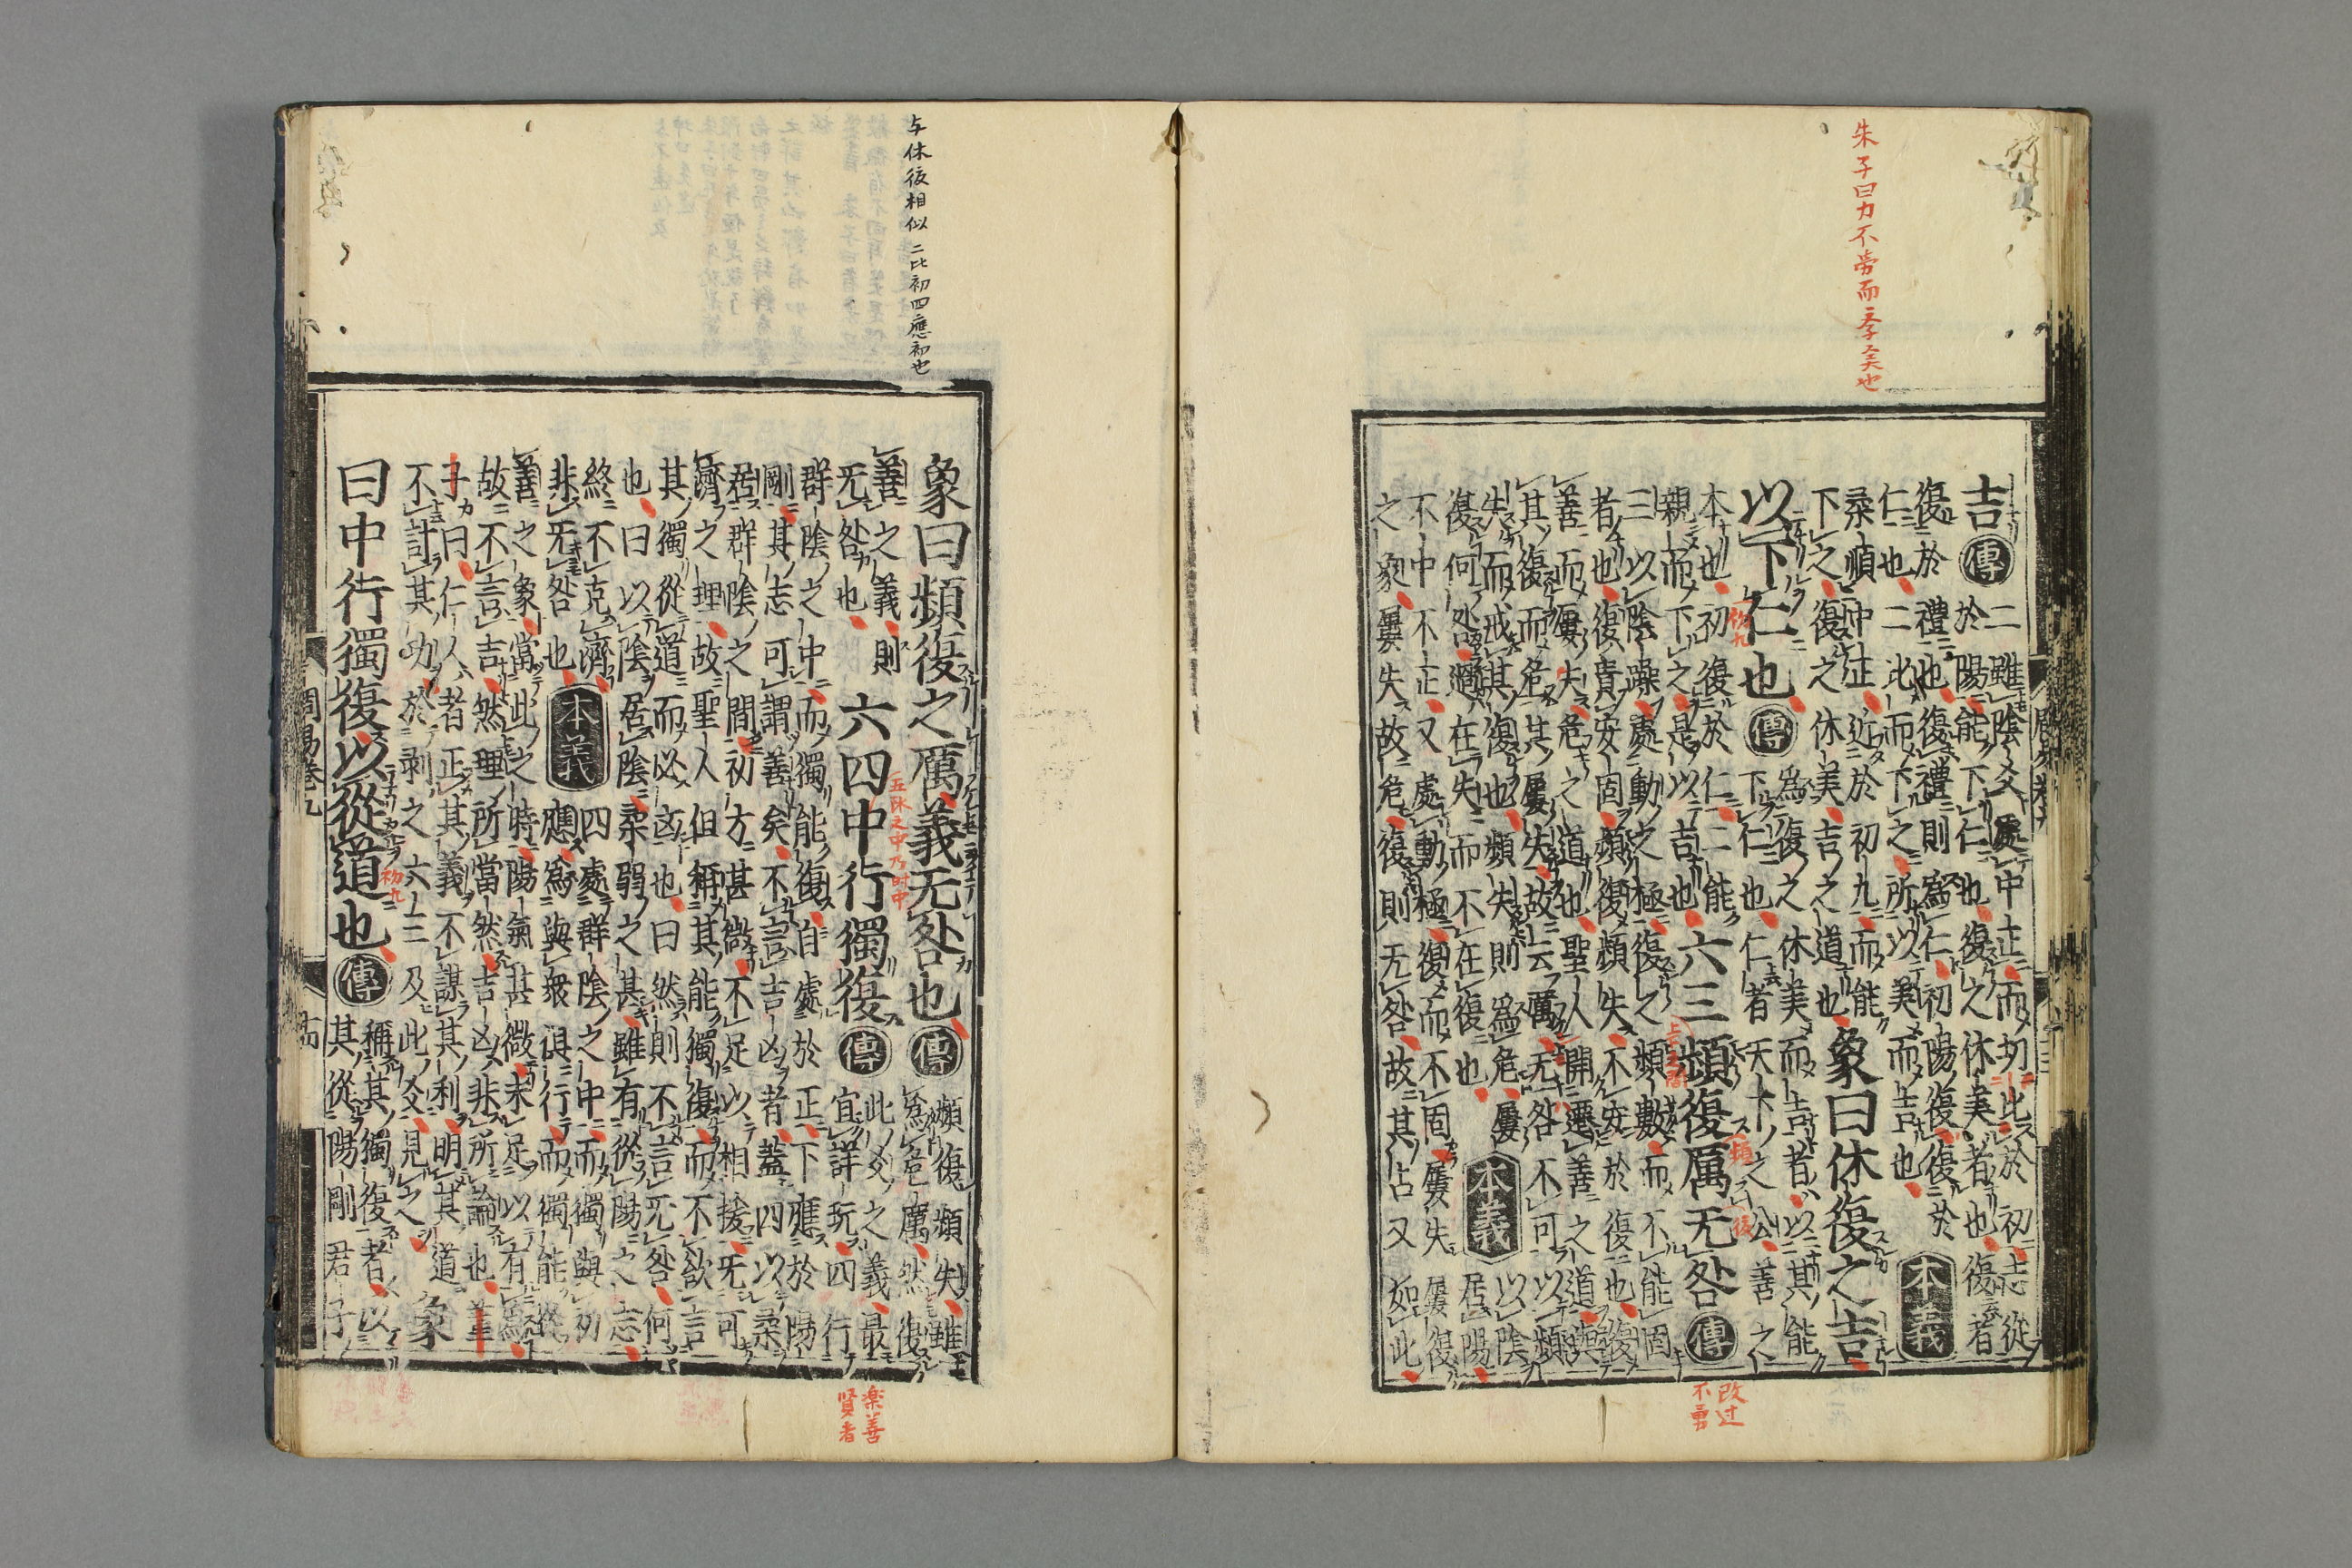 朱子曰力不勞而季美也
吉傳二雖陰爻處中正而切比於初志從
於陽能下仁也復之休美者也復者
復於禮也復禮則爲仁初陽復復於
仁也二比而下之所以美而吉也本義
柔順中正近於初九而能
下之復之休美吉之道也象曰休復之吉
以下仁也傳爲復之休美而吉者以其能
下仁也仁者天下之公善之
本也初復於仁二能
親而下之是以吉也六三頻復厲无咎傳
三以陰躁處動之極復之頻數而不能固
者也復貴安固頻復頻失不安於復也復
善而屢失危之道也聖人開遷善之道與
其復而危其屢失故云厲无咎不可以頻
失而戒其復也頻失則爲危屢
復何咎過在失而不在復也本義以陰
居陽
不中不正又處動極復而不固屢失屢復
之象屢失故危復則无咎故其占又如此
初九
改过
不勇
与休復相似二比初四應初也
象曰頻復之厲義无咎也傳頻復頻失雖
爲危厲然復
善之義則
无咎也六四中行獨復傳此爻之義最
宜詳玩四行
群陰之中而獨能復自處於正下應於陽
剛其志可謂善矣不言吉凶者蓋四以柔
居群陰之間初方甚微不足以相援无可
濟之理故聖人但稱其能獨復而不欲言
其獨從道而必凶也曰然則不言无咎何
也曰以陰居陰柔弱之甚雖有從陽之志
終不克濟
非无咎也本義四處群陰之中而獨與初
應爲與衆俱行而獨能從
善之象當此之時陽氣甚微未足以有爲
故不言吉然理所當然吉凶非所論也董
子曰仁人者正其義不謀其利明其道
不計其功於剥之六三及此爻見之象
曰中行獨復以從道也傳稱其獨復者以
其從陽剛君子
五爻之中乃时中
初九
楽善
賢者
周易卷九